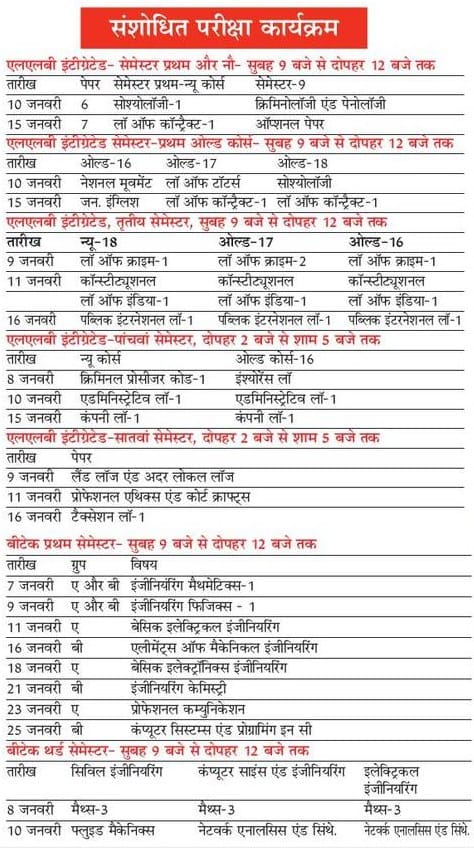 संशोधित परीक्षा कार्यक्रम
एलएलबी इंटीग्रेटेड- सेमेस्टर प्रथम और नौ- सुबह 9 बजे से दोपहर 12 बजे तक
तारीख पेपर सेमेस्टर प्रथम-न्यू कोर्स सेमेस्टर-9
10 जनवरी 6 सोश्योलॉजी-1 क्रिमिनोलॉजी एंड पेनोलॉजी
15 जनवरी 7 लॉ ऑफ कॉन्ट्रैक्ट-1 ऑप्शनल पेपर
एलएलबी इंटीग्रेटेड सेमेस्टर-प्रथम ओल्ड कोर्स- सुबह 9 बजे से दोपहर 12 बजे तक
तारीख ओल्ड-16 ओल्ड-17 ओल्ड-18
10 जनवरी नेशनल मूवमेंट लॉ ऑफ टॉटर्स सोश्योलॉजी
15 जनवरी जन. इंग्लिश लॉ ऑफ कॉन्ट्रैक्ट-1 लॉ ऑफ कॉन्ट्रैक्ट-1
एलएलबी इंटीग्रेटेड, तृतीय सेमेस्टर, सुबह 9 बजे से दोपहर 12 बजे तक
तारीख न्यू-18 ओल्ड-17 ओल्ड-16
9 जनवरी लॉ ऑफ क्राइम-1 लॉ ऑफ क्राइम-2 लॉ ऑफ क्राइम-1
11 जनवरी कॉन्स्टीट्यूशनल कॉन्स्टीट्यूशनल कॉन्स्टिीट्यूशनल
लॉ ऑफ इंडिया-1 लॉ ऑफ इंडिया-1 लॉ ऑफ इंडिया-1
16 जनवरी पब्लिक इंटरनेशनल लॉ-1 पब्लिक इंटरनेशनल लॉ-1 पब्लिक इंटरनेशनल लॉ-1
एलएलबी इंटीग्रेटेड-पांचवां सेमेस्टर, दोपहर 2 बजे से शाम 5 बजे तक
तारीख न्यू कोर्स ओल्ड कोर्स-16
8 जनवरी क्रिमिनल प्रोसीजर कोड-1 इंश्योरेंस लॉ
10 जनवरी एडमिनिस्ट्रेटिव लॉ-1 एडमिनिस्ट्रेटिव लॉ-1
15 जनवरी कंपनी लॉ-1 कंपनी लॉ-1
एलएलबी इंटीग्रेटेड-सातवां सेमेस्टर, दोपहर 2 बजे से शाम 5 बजे तक
तारीख पेपर
9 जनवरी लैंड लॉज एंड अदर लोकल लॉज
11 जनवरी प्रोफेशनल एथिक्स एंड कोर्ट क्राफ्ट्स
16 जनवरी टैक्सेशन लॉ-1
बीटेक प्रथम सेमेस्टर- सुबह 9 बजे से दोपहर 12 बजे तक
तारीख ग्रुप विषय
7 जनवरी ए और बी इंजीनियरिंग मैथमेटिक्स-1
9 जनवरी ए और बी इंजीनियरिंग फिजिक्स - 1
11 जनवरी ए बेसिक इलेक्ट्रिकल इंजीनियरिंग
16 जनवरी बी एलीमेंट्स ऑफ मैकेनिकल इंजीनियरिंग
18 जनवरी ए बेसिक इलेक्ट्रॉनिक्स इंजीनियरिंग
21 जनवरी बी इंजीनियरिंग केमिस्ट्री
23 जनवरी ए प्रोफेशनल कम्युनिकेशन
25 जनवरी बी कंप्यूटर सिस्टम्स एंड प्रोग्रामिंग इन सी
बीटेक थर्ड सेमेस्टर- सुबह 9 बजे से दोपहर 12 बजे तक
तारीख सिविल इंजीनियरिंग कंप्यूटर साइंस एंड इंजीनियरिंग इलेक्ट्रिकल
इंजीनियरिंग
8 जनवरी मैथ्स-3 मैथ्स-3 मैथ्स-3
10 जनवरी फ्लुइड मैकेनिक्स नेटवर्क एनालसिस एंड सिंथे. नेटवर्क एनालसिस एंड सिंथे.